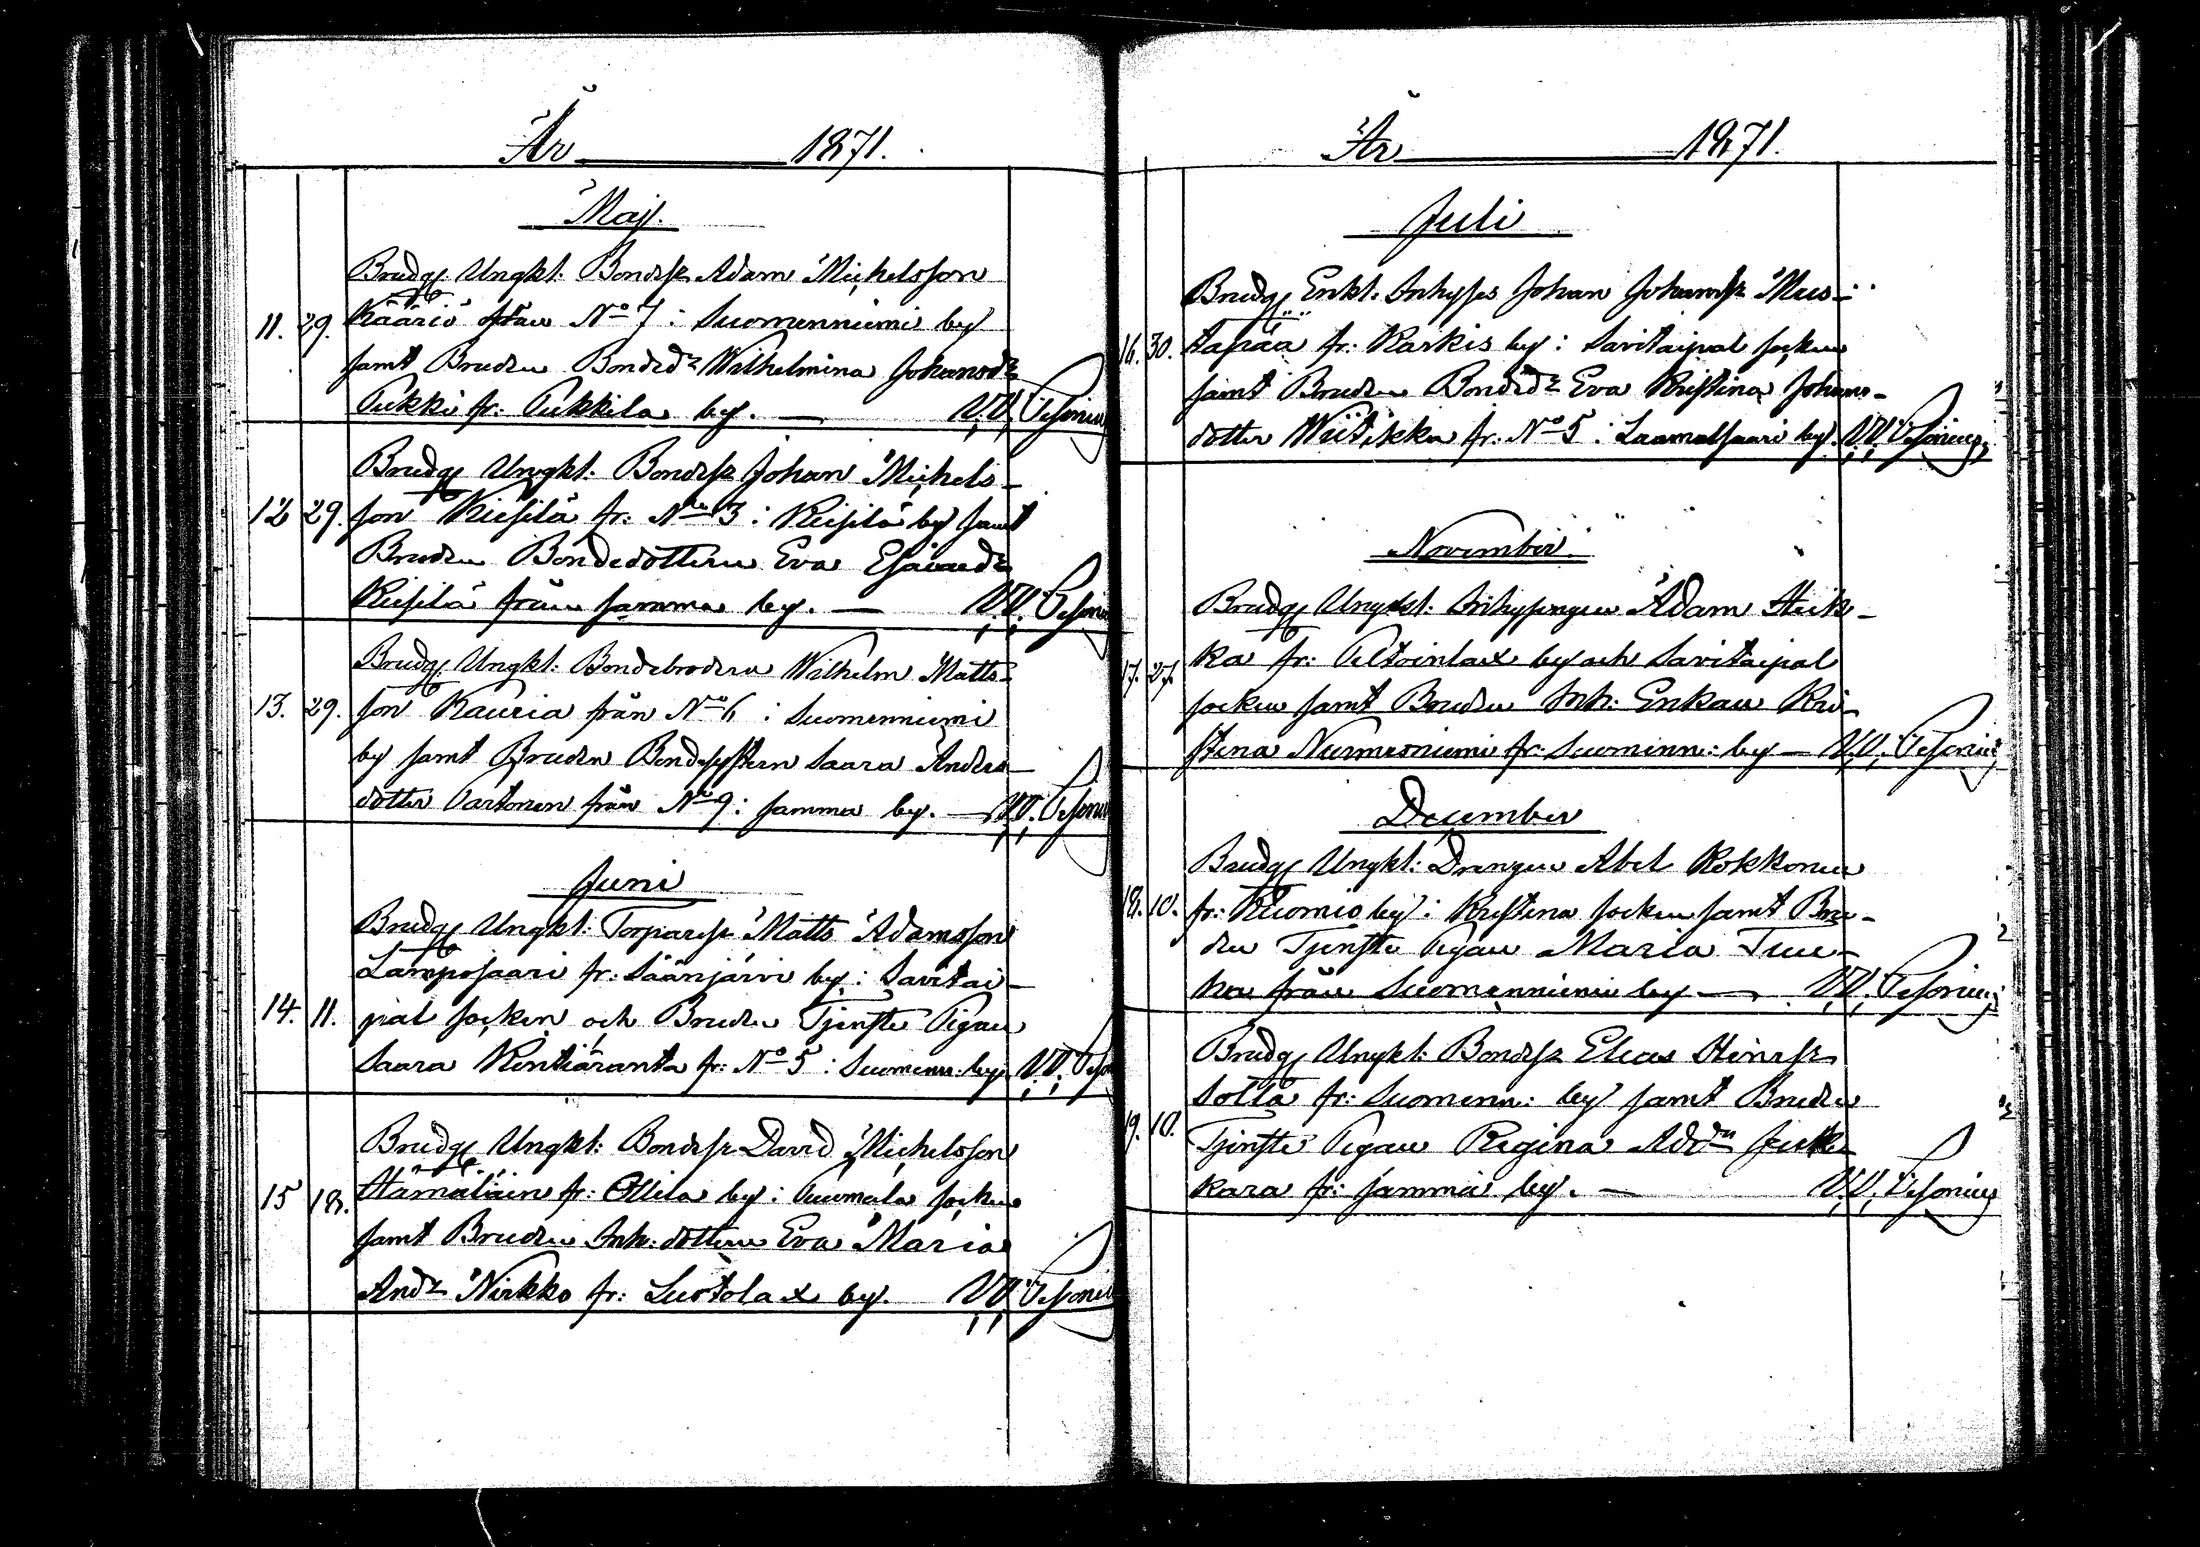 År 1871.
Maj.
Brudg. Ungkl. Bondesk Adam Michelsson
11. 29. Kääriö från No 7 i Suomenniemi by
samt Bruden Bondedr Wilhelmina Johansdr
Pukki fr: Pukkila by. — V.V. Pesonius
Brudg. Ungkl. Bondesk Johan Michels-
12 29. son Kiesilä fr. No 3 i Kiesilä by samt
Bruden Bondedottern Eva Esaiaedr
Kiesilä från samma by. — V.V. Pesonius
Brudg. Ungkl: Bondebrodern Wilhelm Matts-
13. 29. son Kauria från No 6 i Suomenniemi
by samt Bruden Bondesystern Saara Anders-
dotter Partonen från No 9 i samma by. — V.V. Pesonius
Juni
Brudg. Ungkl: Torparesk Matts Adamsson
Lamposaari fr: Säänjärvi by i Savitai-
14. 11. pal socken och Bruden Tjenste Pigan
Saara Kontiäranta fr: No 5 i Suomenn: by V.V. Peso
Brudg. Ungkl: Bondesk David Michelsson
15 18. Hämäläin fr: Ollila by i Puumala socken
samt Bruden Inh: dottern Eva Maria
Andr Nirkko fr: Luotolax by. V.V. Pesonius
År 1871.
Juli
Brudg. Enkl. Inhyses Johan Johansk Mus-
16. 30. tapää fr: Kärkis by i Savitaipal socken
samt Bruden Bondedr Eva Kristina Johans-
dotter Wiitikka fr: No 5 i Laamalsaari by. V.V. Pesonius
November
Brudg. Ungkl: Inhysingen Adam Huk-
17. 27. ka fr: Peltoinlax by och Savitaipal
socken samt Bruden Inh: Enkan Kri-
stina Nurmesniemi fr: Suomenn: by — V.V. Pesonius
December
Brudg. Ungkl: Drengen Abel Kokkonen
18. 10. fr: Kuomio by i Kristina socken samt Bru-
den Tjenste Pigan Maria Tuu-
nen från Suomenniemi by — V.V. Pesonius
Brudg. Ungkl: Bondesk Elias Henrsk
Solla fr: Suomenn: by samt Bruden
19. 10. Tjenste Pigan Regina Addn
kara fr: samma by. — V.V. Pesonius